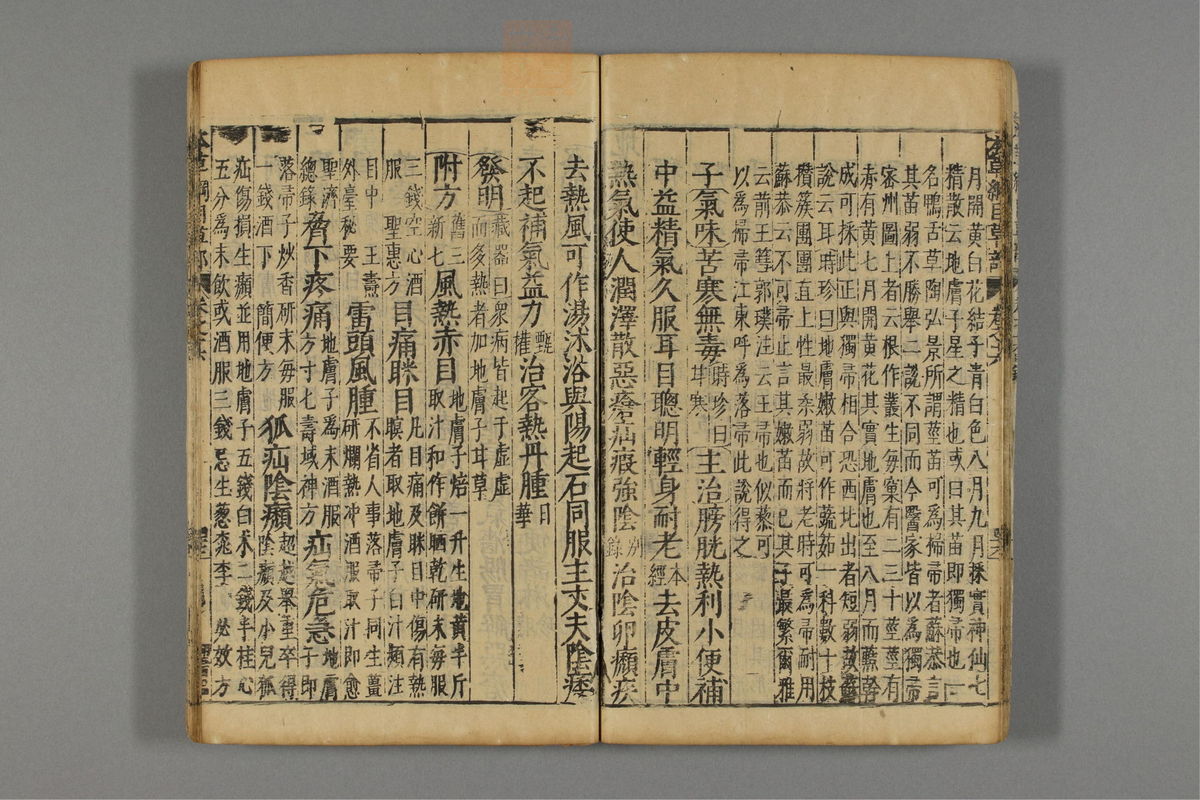 月開黃白花結子青白色八月九月採實神仙七
精散云地膚子星之精也或曰其苗即獨帚也一
名鴨舌草陶弘景所謂莖苗可為掃帚者蘇恭言
其苗弱不勝舉二說不同而今醫家皆以為獨帚
宻州圖上者云根作叢生每窠有二三十莖莖有
赤有黃七月開黃花其實地膚也至八月而䕸幹
成可採此正與獨帚相合恐西北出者短弱故蘇
說云耳時珍曰地膚嫩苗可作蔬茹一科數十枝
攢簇團團直上性最柔弱故將老時可為帚耐用
蘇恭云不可帚止言其嫩苗而已其子最繁爾雅
云葥王篲郭璞注云王帚也似藜可
以為掃帚江東呼為落帚此說得之
子氣味苦寒無毒時珍曰甘寒主治膀胱熱利小便補
中益精氣久服耳目聰明輕身耐老本經去皮膚中
熱氣使人潤澤散惡瘡疝瘕強陰別錄治陰卵㿗疾
去熱風可作湯沐浴與陽起石同服主丈夫陰痿
不起補氣益力甄權治客熱丹腫日華
發明藏器曰眾病皆起于虛虛而多熱者加地膚子甘草
附方舊三新七風熱赤目地膚子焙一升生地黃半斤取汁和作餅晒乾研末每服
三錢空心酒服聖惠方目痛眯目凡目痛及眯目中傷有熱瞑者取地膚子白汁頻注
目中王燾外臺秘要雷頭風腫不省人事落帚子同生薑研爛熱冲酒服取汁即愈
聖濟總錄脅下疼痛地膚子為末酒服方寸匕壽域神方疝氣危急地膚子即
落帚子炒香研末每服一錢酒下簡便方狐疝陰㿗超越舉重卒得陰㿗及小兒狐
疝傷損生㿗並用地膚子五錢白朮二錢半桂心
五分為末飲或酒服三錢忌生蔥桃李必效方
本草綱目草部